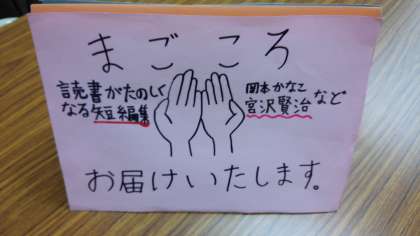 まごころ
読書がたのしく
なる短編集
岡本かなこ
宮沢賢治など
お届けいたします。